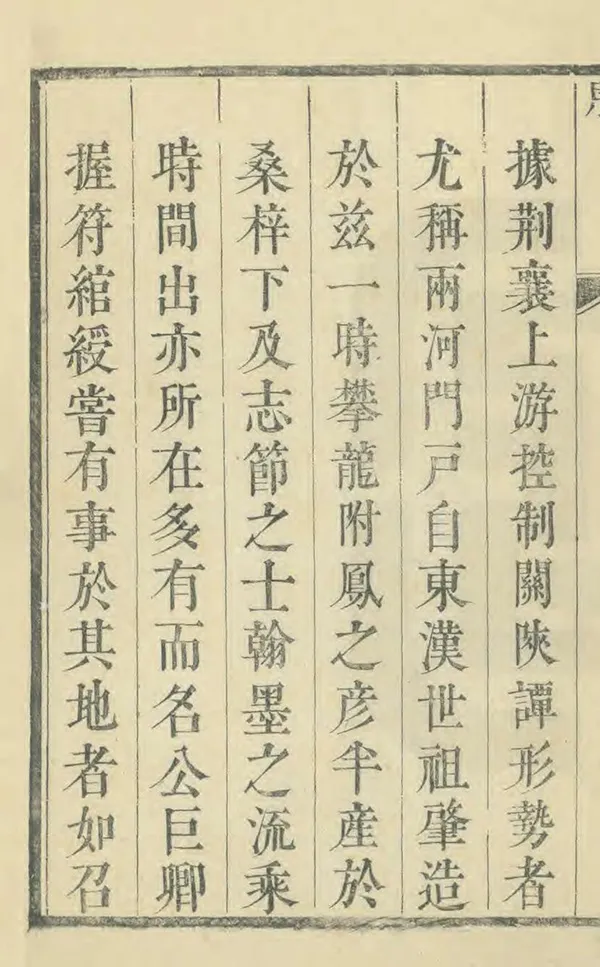 據荆襄上游控制關陜譚形勢者
尤稱兩河門戸自東漢世祖肇造
於兹一時攀龍附鳳之彦半産於
桑梓下及志節之士翰墨之流乘
時間出亦所在多有而名公巨卿
握符綰綬嘗有事於其地者如召